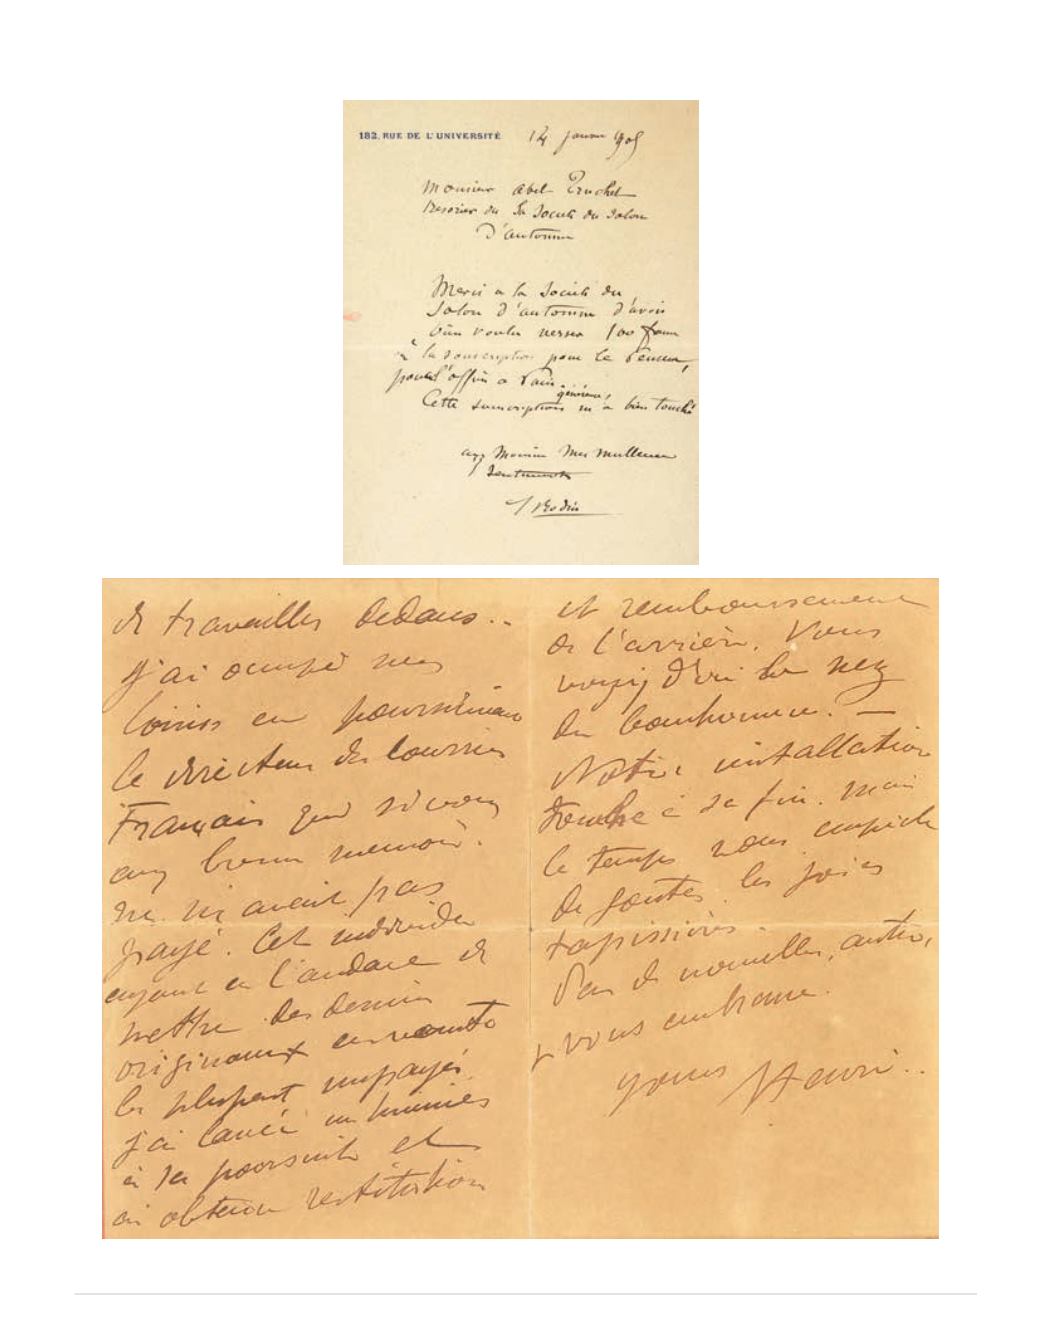 182, RUE DE L'UNIVERSITÉ 14 janvier 1905
Monsieur Abel Truchet
Tresorier de la Societe du Salon
D'automne
Merci a la Societe du
Salon d'automne d'avoir
bien voulu verser 100 francs
à la souscription pour le Penseur,
pour l'offrir a Paris.
généreuse,
Cette suscription m'a bien touché
Monsieur Mes meilleurs
Sentiments
Rodin
de travailler dedans..
J'ai occupé mes
loisirs en poursuivant
le directeur du Courrier
Français qui si vous
avez bonne memoire.
ne m'avait pas
payé. Cet individu
ayant eu l'audace de
mettre des dessins
originaux en vente
la plupart impayés
j'ai lancé un huissier
à sa poursuite et
ai obtenu restitution
et remboursement
de l'arriéré. Vous
voyez d'ici le nez
du bonhomme. —
Notre installation
touche à sa fin. mais
le temps nous empêche
de gouter les joies
tapissières.
Pas de nouvelles autres,
vous embrasse.
yours Henri..